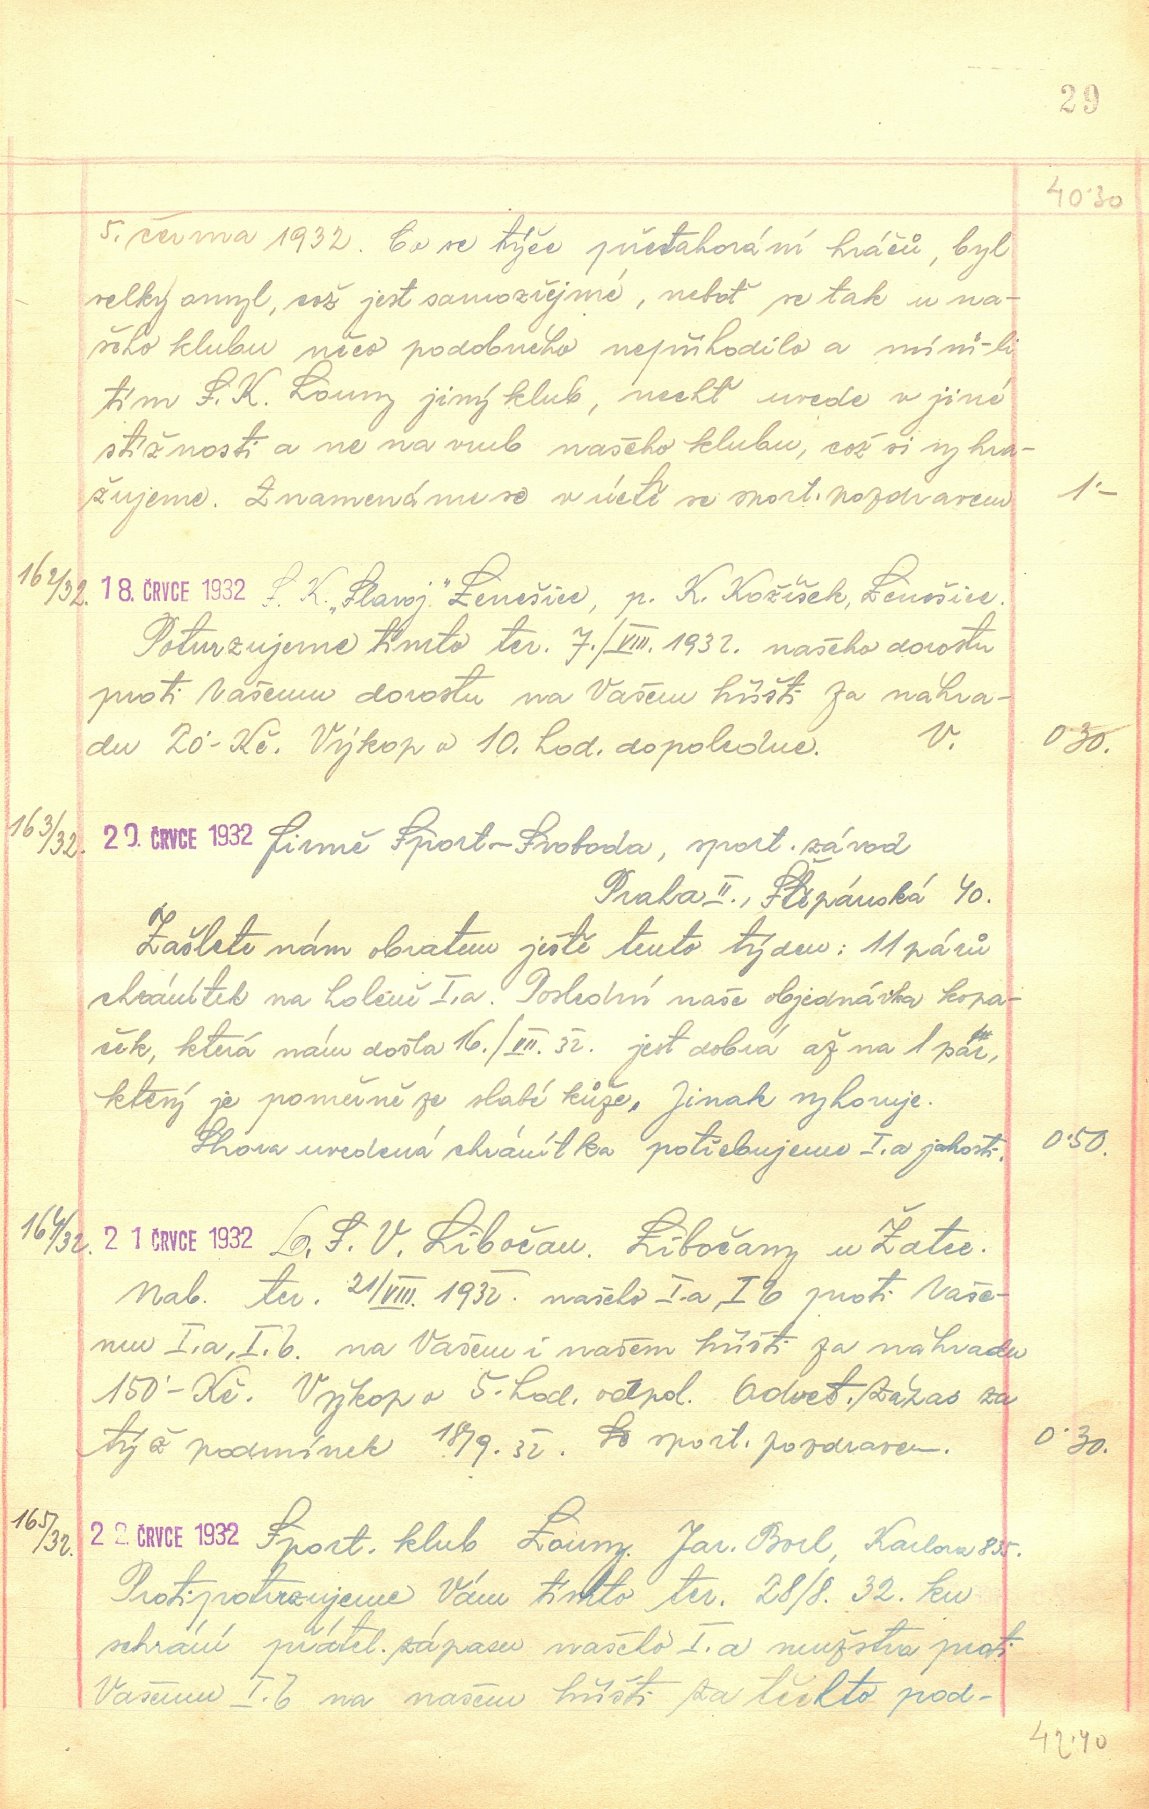 29
40·30
5. června 1932. Co se týče přetahování hráčů, byl
velký omyl, což jest samozřejmé, neboť se tak u na-
šeho klubu něco podobného nepřihodilo a míní-li
tím S. K. Louny jiný klub, nechť uvede v jiné
stížnosti a ne na vrub našeho klubu, což si vyhra-
žujeme. Znamenáme se v úctě se sport. pozdravem 1·-
162/32. 18. ČRVCE 1932 S. K. „Slavoj" Ženešice, p. K. Kožíšek, Ženešice.
Potvrzujeme tímto ter. 7./VIII. 1932. našeho dorostu
proti Vašemu dorostu na Vašem hřišti za náhra-
du 20·- Kč. Výkop o 10. hod. dopoledne. V. 0·30.
163/32. 20. ČRVCE 1932 Firmě Sport-Svoboda, sport. závod
Praha II., Štěpánská 40.
Zašlete nám obratem ještě tento týden: 11 párů
chránítek na holeně I.a. Poslední naše objednávka kopa-
ček, která nám došla 16./VII. 32. jest dobrá až na 1 pár,
který je poměrně ze slabé kůže, Jinak vyhovuje.
Shora uvedená chránítka potřebujeme I.a jakosti. 0·50.
164/32. 21 ČRVCE 1932 S. V. Libočan. Libočany u Žatce.
Nab. ter. 21/VIII. 1932. našeho I.a, I b proti Vaše-
mu I.a, I.b. na Vašem i našem hřišti za náhradu
150·- Kč. Výkop o 5. hod. odpol. Odvet. zápas za
týž podmínek 18/9. 32. Se sport. pozdravem. 0·30.
165/32. 22. ČRVCE 1932 Sport. klub Louny. Jar. Borl, Karlova 835.
Protipotvrzujeme Vám tímto ter. 28/8. 32. ku
sehrání přátel. zápasu našeho I.a mužstva proti
Vašemu I.b na našem hřišti za těchto pod-
42·40